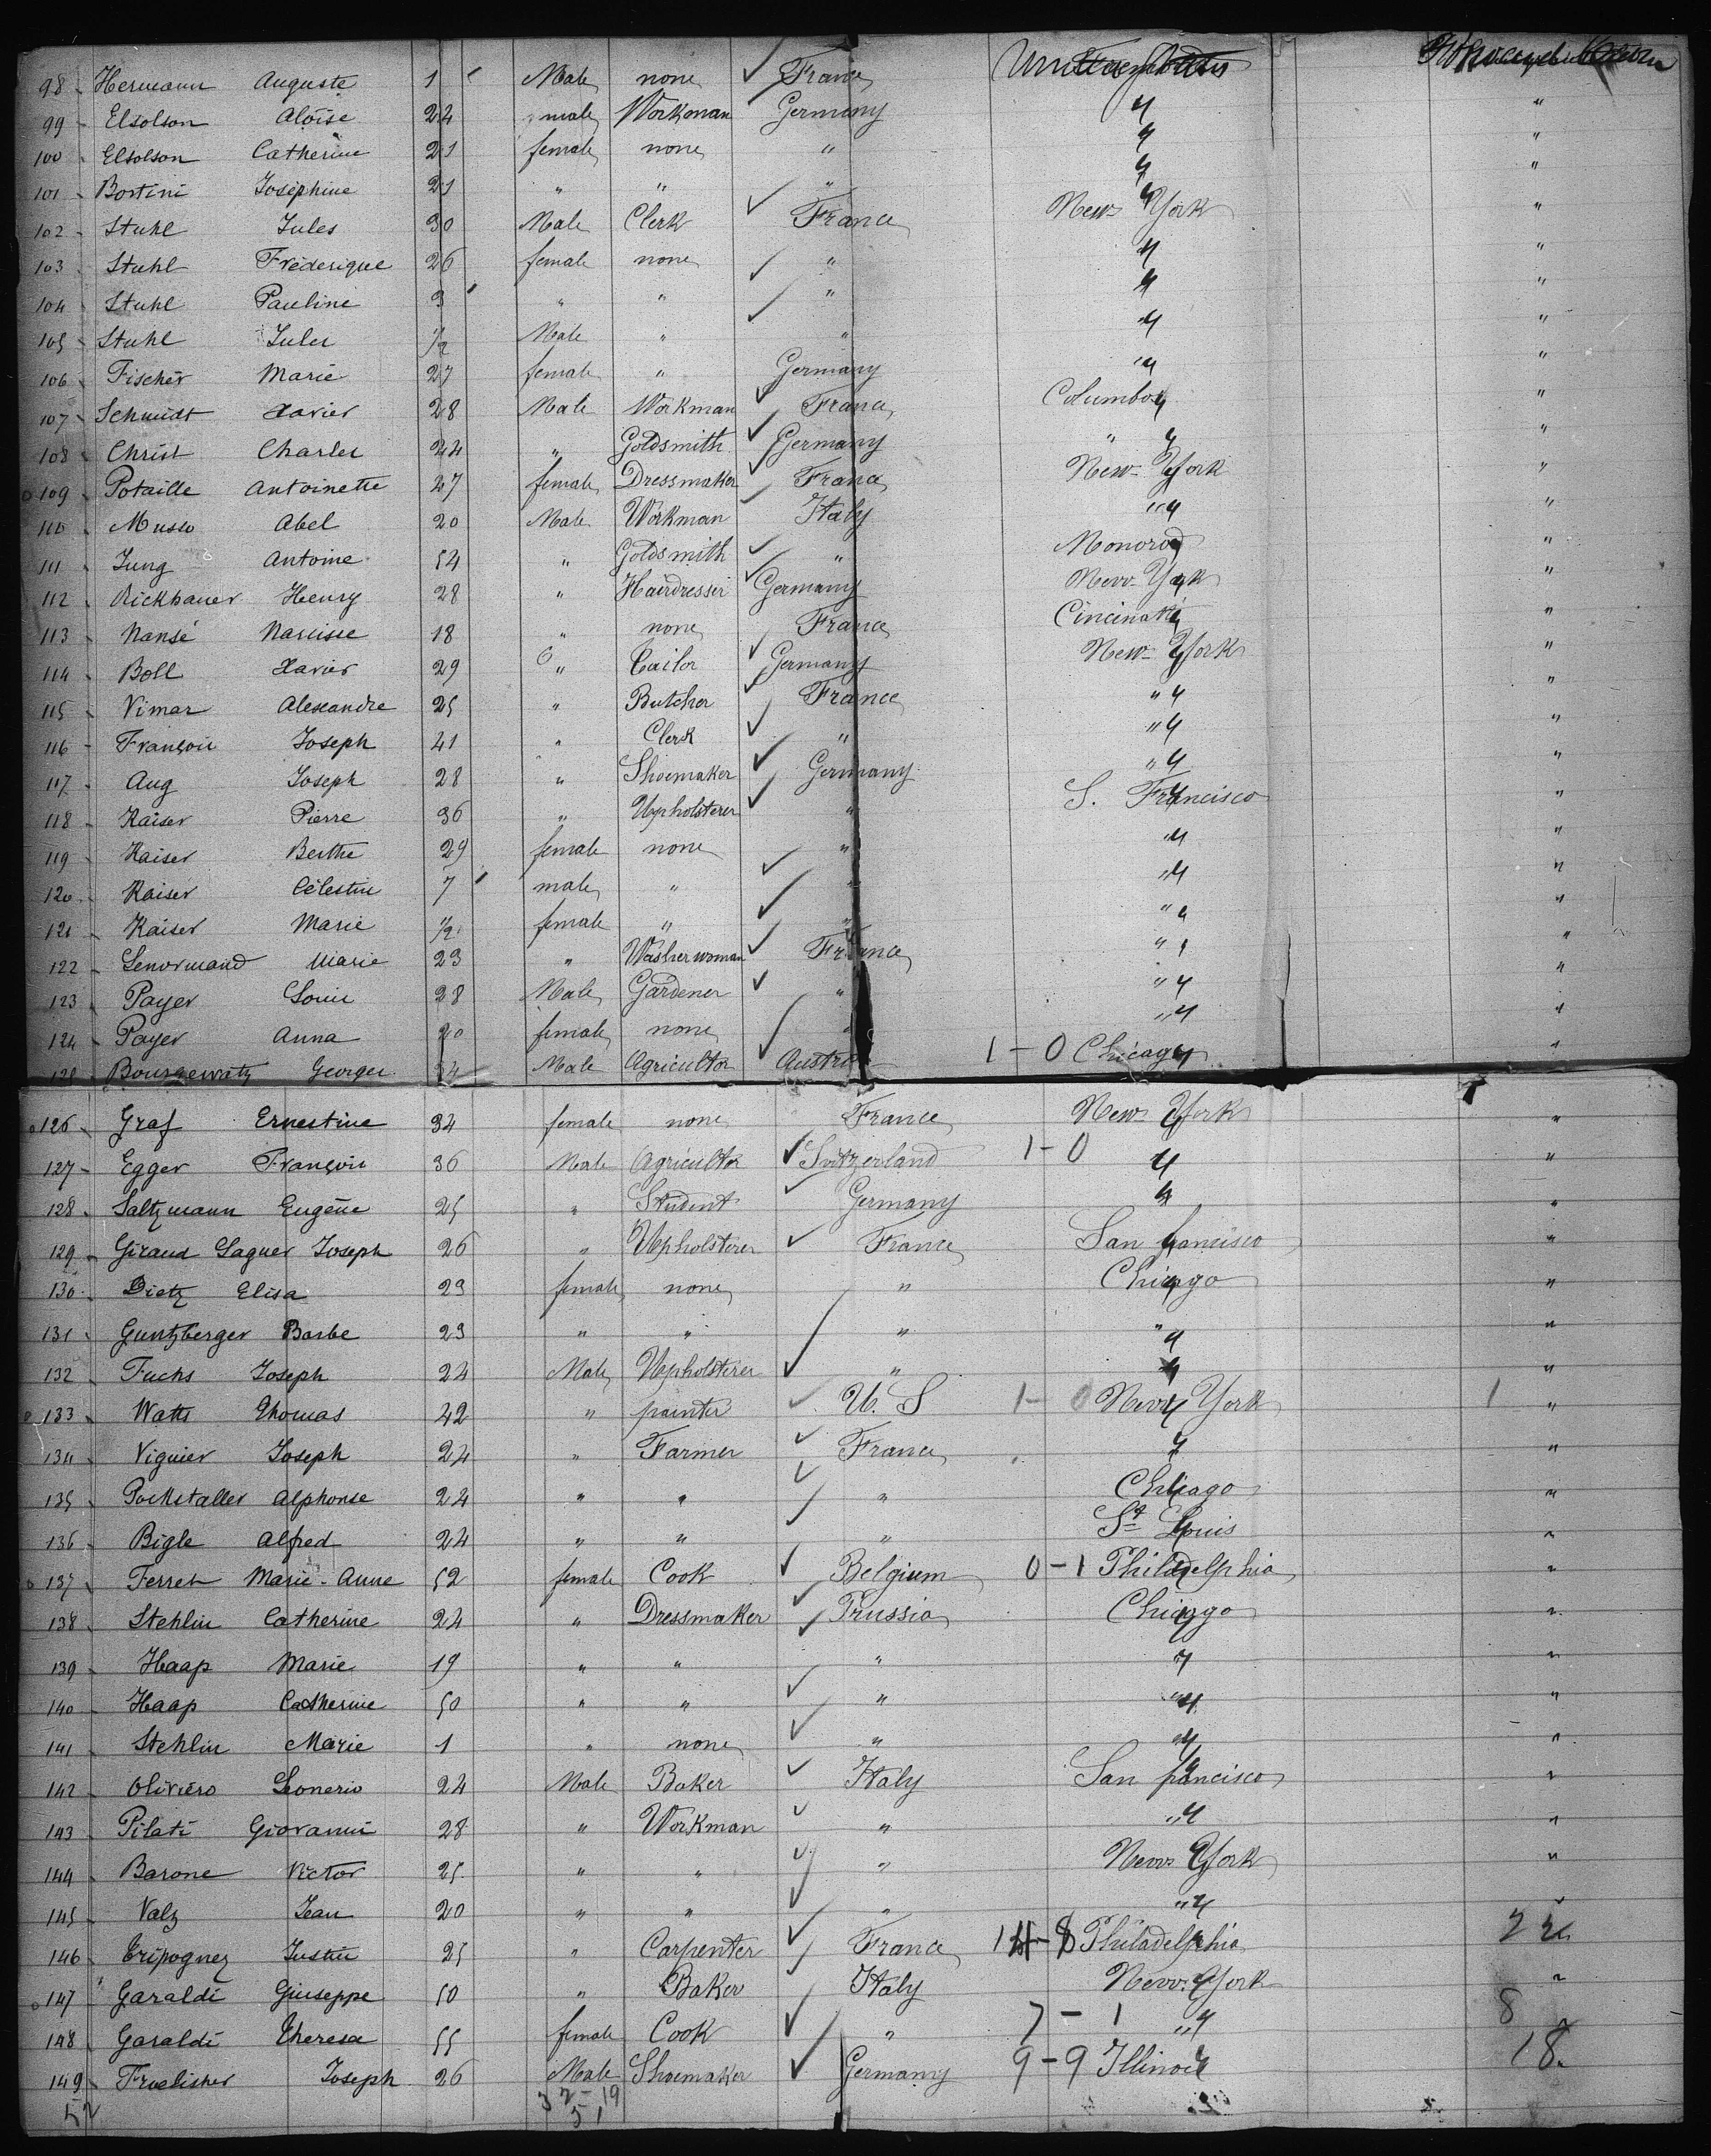 98 Hermann Auguste 1 Male none ✓ France
99 Elsolson Aloïse 24 male Workman Germany "
100 Elsolson Catherine 21 female none " "
101 Bortini Joséphine 21 " " " "
102 Stuhl Jules 30 Male Clerk ✓ France New York "
103 Stuhl Fréderique 26 female none ✓ " " "
104 Stuhl Pauline 3 " " ✓ " " "
105 Stuhl Jules 1/2 Male " " " "
106 Fischer Marie 27 female " Germany " "
107 Schmidt Xavier 28 Male Workman ✓ France Columbos "
108 Christ Charles 44 " Goldsmith ✓ Germany " "
109 Potaille Antoinette 27 female Dressmaker ✓ France New-York "
110 Musso Abel 20 Male Workman ✓ Italy " "
111 Jung Antoine 54 " Goldsmith ✓ " "
112 Rickhauer Henry 28 " Hairdresser ✓ Germany New-York "
113 Nansé Narcisse 18 " none France Cincinati "
114 Boll Xavier 29 " Tailor ✓ Germany New-York "
115 Vimar Alexandre 25 " Butcher ✓ France " "
116 François Joseph 41 " Clerk ✓ " " "
117 Aug Joseph 28 " Shoemaker ✓ Germany " "
118 Kaiser Pierre 36 " Upholsterer ✓ " S. Francisco "
119 Kaiser Berthe 29 female none " " "
120 Kaiser Célestin 7 male " ✓ " " "
121 Kaiser Marie 1/2 female " ✓ " " "
122 Lenormand Marie 23 " Washerwoman ✓ France " "
123 Payer Louis 28 Male Gardener ✓ " " "
124 Payer Anna 20 female none " " "
125 Bourgewatz Georges 34 Male Agricultor ✓ Austria 1-0 Chicago "
126 Graf Ernestine 34 female none France New York "
127 Egger François 36 Male Agricultor ✓ Switzerland 1-0 " "
128 Saltzmann Eugène 25 " Student ✓ Germany " "
129 Giraud Saguer Joseph 26 " Upholsterer ✓ France San francisco "
130 Dietz Elisa 23 female none " Chicago "
131 Guntzberger Barbe 23 " " ✓ " " "
132 Fuchs Joseph 24 Male Upholsterer ✓ " " "
133 Watts Thomas 42 " painter ✓ U. S 1-0 New York 1 "
134 Viguier Joseph 24 " Farmer ✓ France " "
135 Pockstaller Alphonse 24 " " ✓ " Chicago "
136 Bigle Alfred 24 " " ✓ " St Louis "
137 Ferret Marie-Anne 52 female Cook ✓ Belgium 0-1 Philadelphia "
138 Stehlin Catherine 24 " Dressmaker ✓ Prussia Chicago "
139 Haap Marie 19 " " " " "
140 Haap Catherine 50 " " ✓ " " "
141 Stehlin Marie 1 " none ✓ " " "
142 Oliviéro Leonerio 24 Male Baker ✓ Italy San francisco "
143 Pilati Giovanni 28 " Workman ✓ " " "
144 Barone Victor 25 " " ✓ " New York "
145 Valz Jean 20 " " ✓ " " "
146 Tripognez Justin 25 " Carpenter ✓ France Philadelphia 22
147 Garaldi Giuseppe 50 " Baker ✓ Italy New-York "
148 Garaldi Theresa 55 female Cook ✓ " 7-1 " 8
149 Froelisher Joseph 26 Male Shoemaker ✓ Germany 9-9 Illinois 18
52 32-19
51